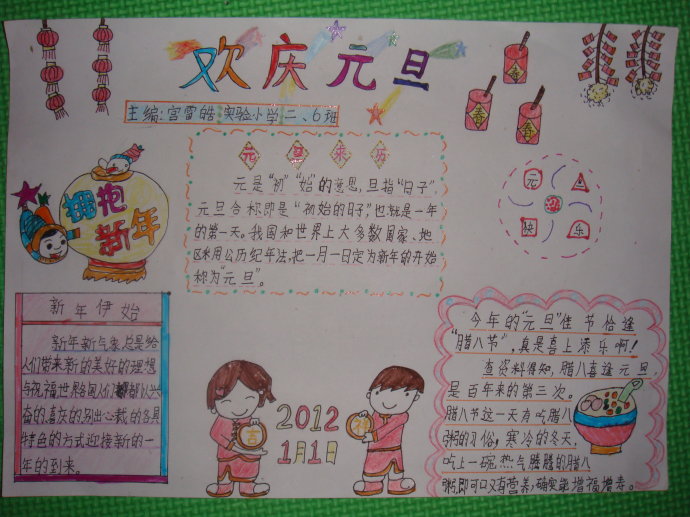 欢庆元旦
主编:宫雷皓 实验小学二、6班
春
春
春
元旦来历
元是“初”“始”的意思,旦指“日子”,
元旦合称即是“初始的日子”,也就是一年
的第一天。我国和世界上大多数国家、地
区采用公历纪年法,把一月一日定为新年的开始
称为“元旦”。
元
快
乐
拥抱
新年
新年伊始
新年新气象总是给
人们带来新的美好的理想
与祝福世界各国人们都以兴
奋的喜庆的别出心裁的各具
特色的方式迎接新的一
年的到来。
2012
1月1日
吉
祥
今年的“元旦”佳节恰逢
“腊八节”,真是喜上添乐啊!
查资料得知,腊八喜逢元旦,
是百年来的第三次。
腊八节这一天有吃腊八
粥的习俗,寒冷的冬天,
吃上一碗热气腾腾的腊八
粥,即可口又有营养,确实能增福增寿。